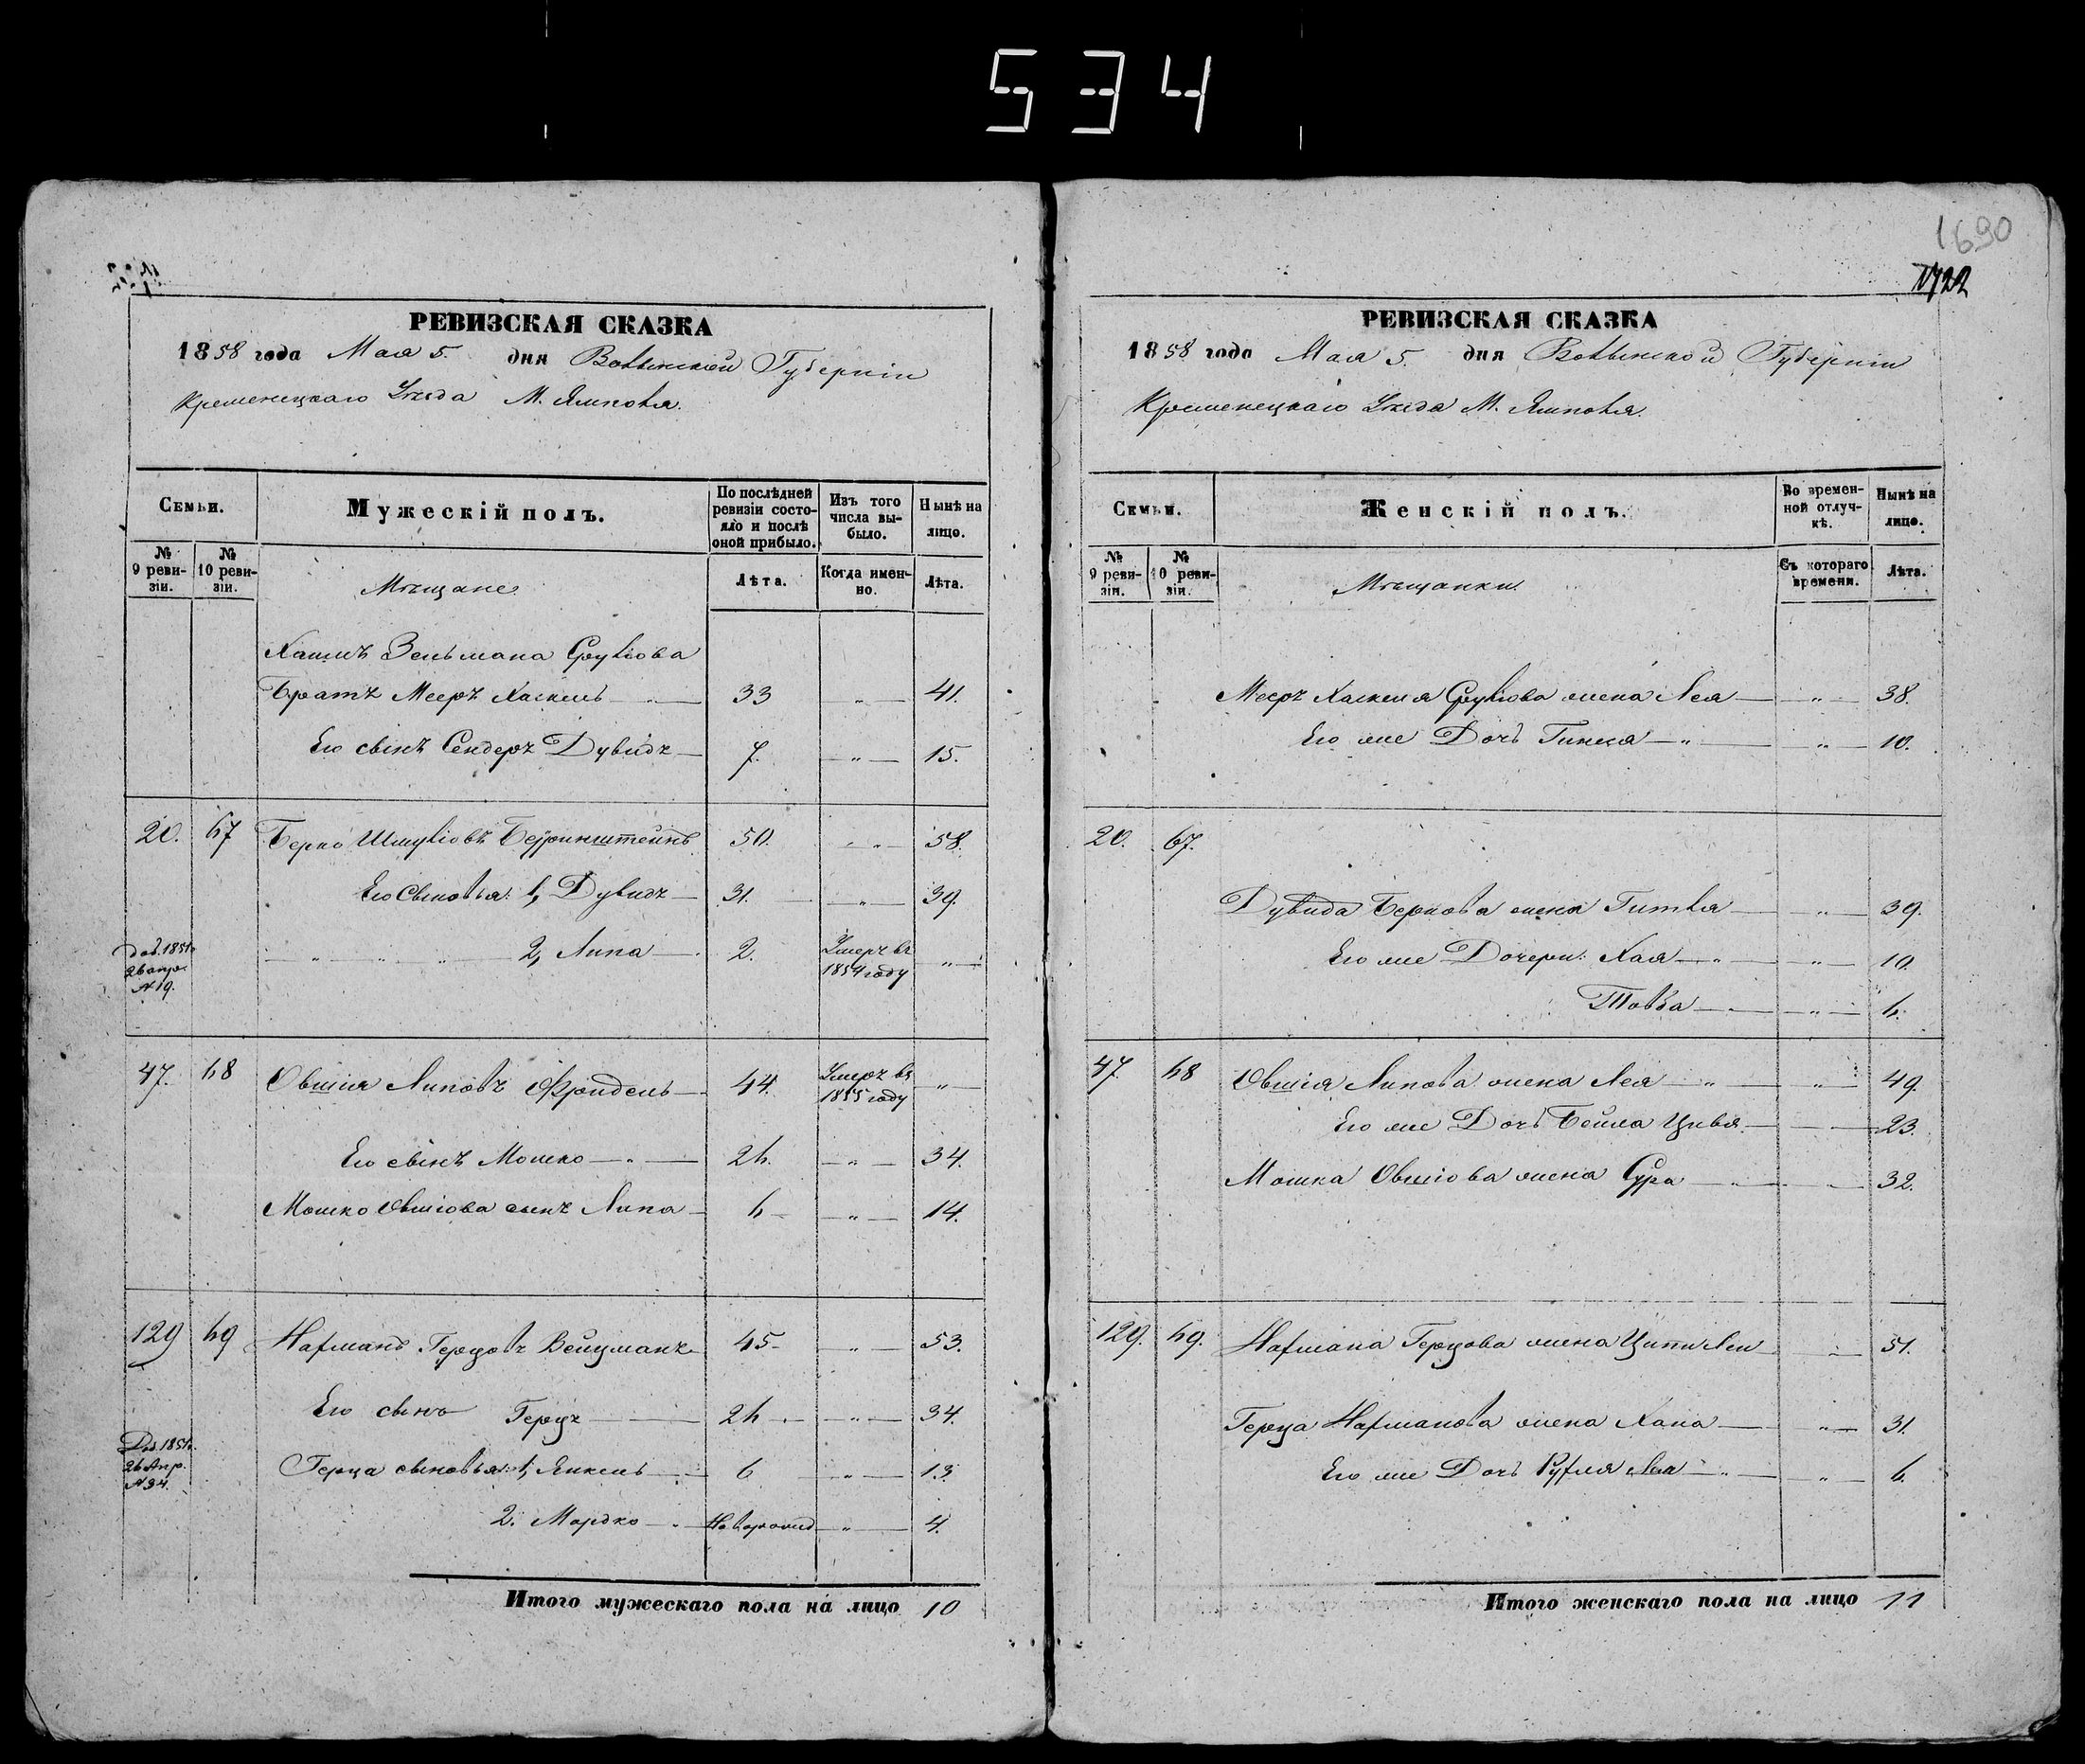 534
1690
1722
РЕВИЗСКАЯ СКАЗКА
1858 года Мая 5. дня Волынской Губерніи
Кременецкаго Уѣзда М. Ямполя.
Семьи.
Мужескій полъ.
По послѣдней ревизіи состояло и послѣ оной прибыло.
Изъ того числа выбыло.
Нынѣ на лицо.
№ 9 ревизіи.
№ 10 ревизіи.
Мѣщане
Лѣта.
Когда именно.
Лѣта.
Хаимъ Зельмана Сруліова
Братъ Мееръ Хаскель 33 " 41.
Его сынъ Сендеръ Дувидъ 7. " 15.
20. 67 Берко Шмуліовъ 50. " 58.
Его Сыновья: 1, Дувидъ 31. " 39.
доб. 1851
26 апр.
№ 19.
" " " 2, Липа 2. Умеръ въ 1854 году "
47. 68 Овшія Липовъ Фридель 44. Умеръ въ 1855 году "
Его сынъ Мошко 26. " 34.
Мошко Овшіова сынъ Липа 6 " 14.
129 69 Нахманъ Герцовъ Вейцманъ 45 " 53.
Его сынъ Герцъ 26 " 34.
Доб. 1851
26 Апр.
№ 34.
Герца сыновья: 1, Янкель 6 " 13
2. Мордко Новорожд " 4.
Итого мужескаго пола на лицо 10
РЕВИЗСКАЯ СКАЗКА
1858 года Мая 5. дня Волынской Губерніи
Кременецкаго Уѣзда М. Ямполя.
Семьи.
Женскій полъ.
Во временной отлучкѣ.
Нынѣ на лицо.
№ 9 ревизіи.
№ 10 ревизіи.
Мѣщанки.
Съ котораго времени.
Лѣта.
Меера Хаскеля Сруліова жена Лея " 38.
Его же Дочь " 10.
20. 67.
Дувида Беркова жена Гитля " 39.
Его же Дочери: Хая " 10.
Товба " 6.
47. 68 Овшія Липова жена Лея " 49.
Его же Дочь Бейла Цивья 23.
Мошка Овшіова жена Сура 32.
129. 69. Нахмана Герцова жена Ципи Леи 51.
Герца Нахманова жена Хана " 31.
Его же Дочь Рухля Лея " 6.
Итого женскаго пола на лицо 11